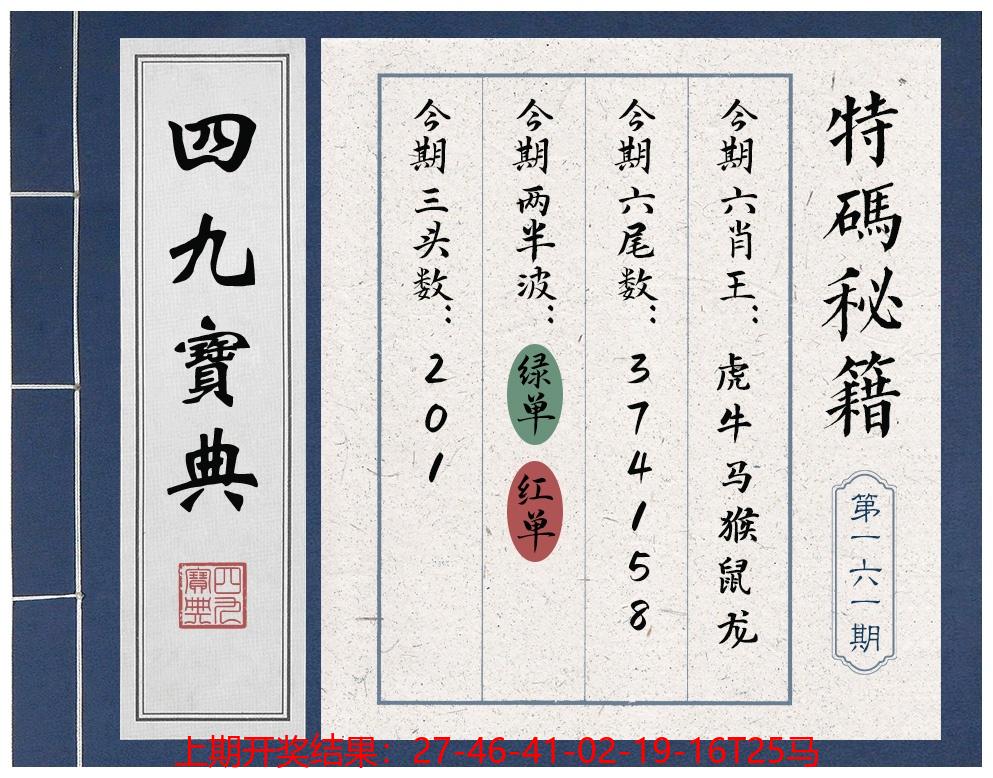 特碼秘籍
第一六一期
今期六肖王：虎牛马猴鼠龙
今期六尾数：374158
今期两半波：绿单 红单
今期三头数：201
四九寶典
四九寶典
上期开奖结果：27-46-41-02-19-16T25马